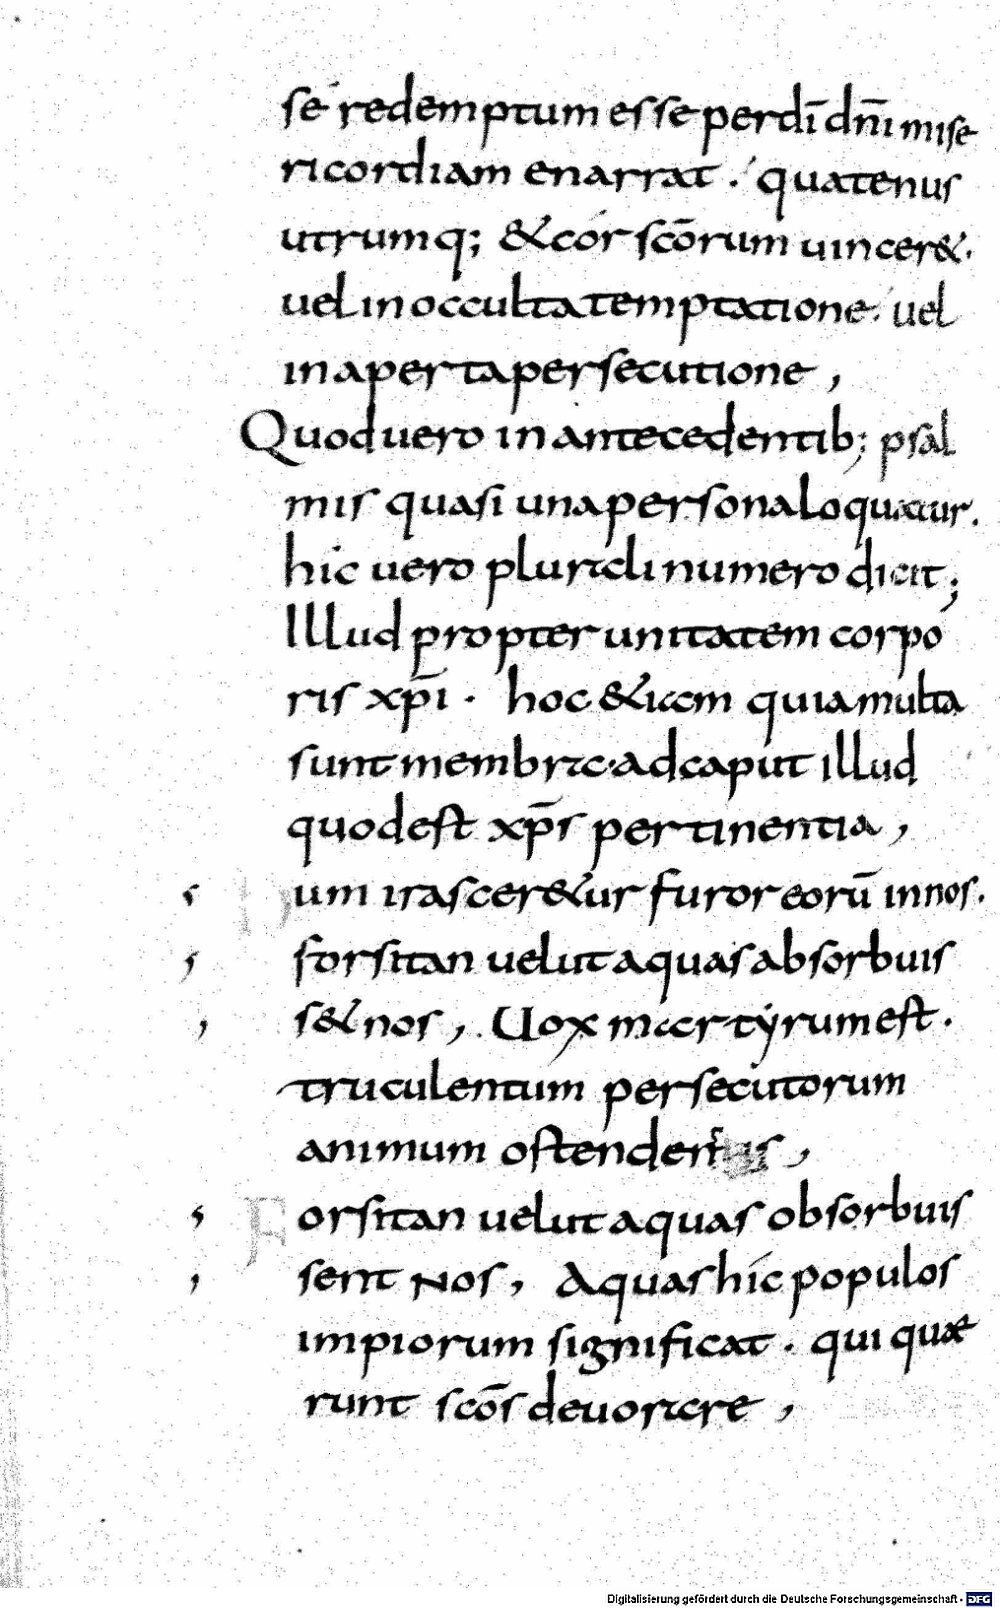 se redemptum esse per dī dn̄i mise
ricordiam enarrat. quatenus
utrumq; & cor scōrum uincer&.
uel in occulta temptatione. uel
in aperta persecutione,
Quod uero in antecedentib; psal
mis quasi una persona loquatur.
hic uero plurali numero dicit;
Illud propter unitatem corpo
ris xp̄i. hoc &iam quia multa
sunt membra. ad caput illud
quod est xp̄s pertinentia,
um irascer&ur furor eorū in nos.
forsitan uelut aquas absorbuis
s&nos, Uox martyrum est.
truculentum persecutorum
animum
Forsitan uelut aquas obsorbuis
sent Nos, Aquas hic populos
impiorum significat. qui quæ
runt scōs deuorare,
Digitalisierung gefördert durch die Deutsche Forschungsgemeinschaft - DFG